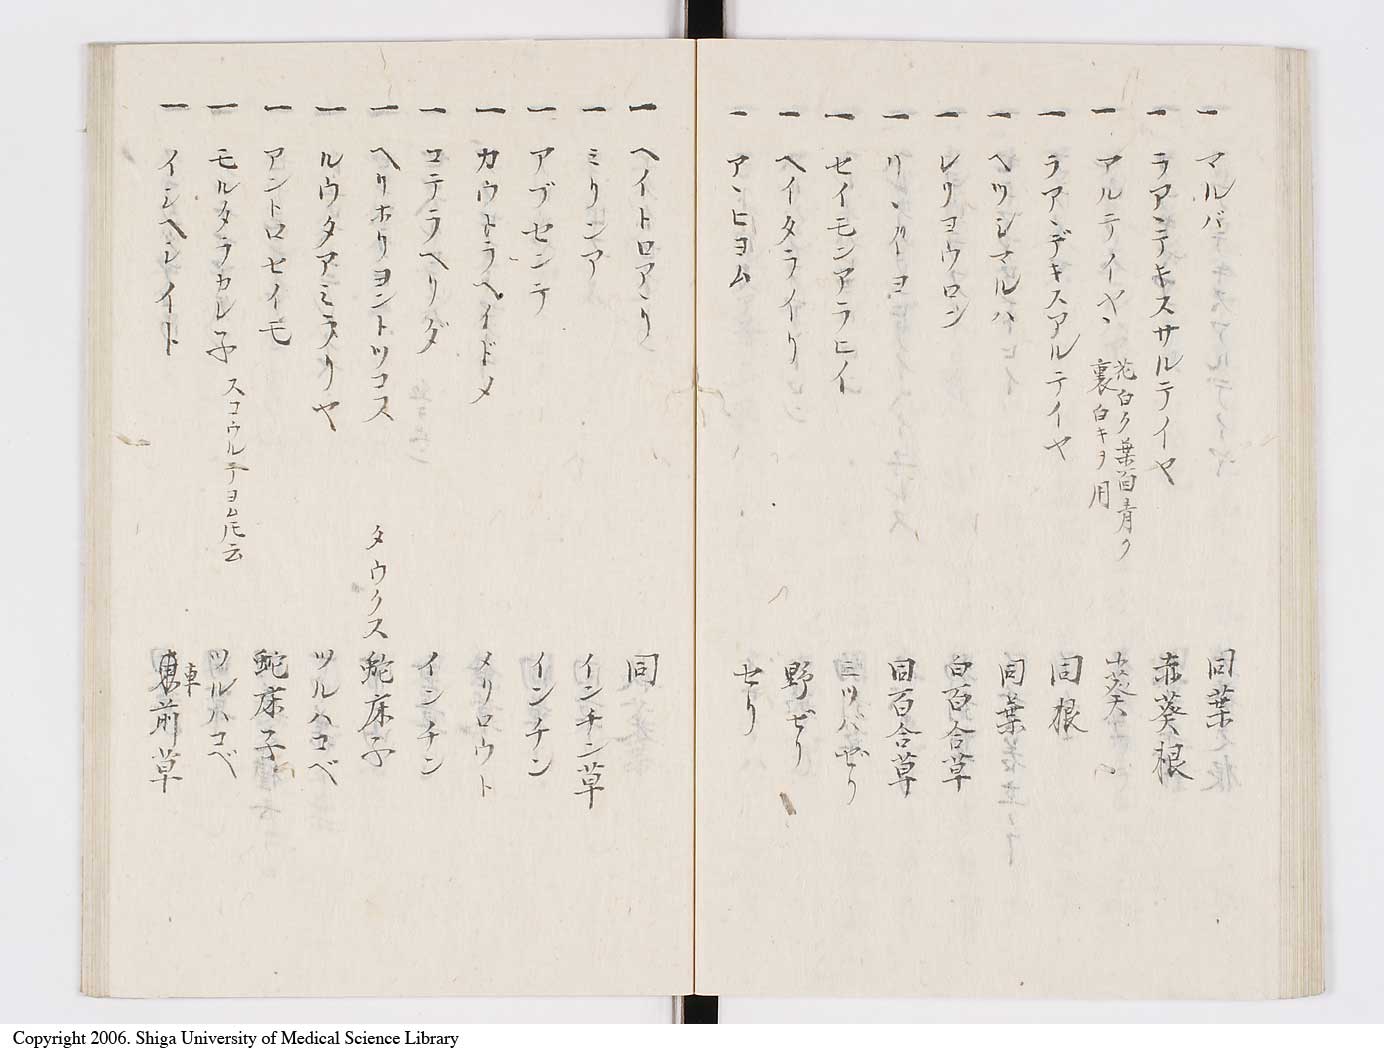 一 マルバ 同葉
一 ラアンテキスサルテイヤ 赤葵根
一 アルテイヤ、 花白ク葉面青ク裏白キヲ用 小葵
一 ラアンデキスアルテイヤ 同根
一 ヘツシマルハ 同葉
一 レリヨウロン 白百合草
一 リ、リヨ 同百合草
一 セイモンアラヒイ 三ツバゼリ
一 ヘイタライリ 野ゼリ
一 アンヒヨム セリ
一 ヘイトロアンリ 同
一 ミリンア インチン草
一 アブセンテ インチン
一 カウトラヘイドメ メリロウト
一 コテラヘリダ インチン
一 ヘリホリヨントツコス タウクス 蛇床子
一 ルウタアミラリヤ ツルハコベ
一 アントロセイモ 蛇床子
一 モルタラカレ子 スコウルテヨム𪜈云 ツルハコベ
一 イシヘレイト 車前草
Copyright 2006. Shiga University of Medical Science Library